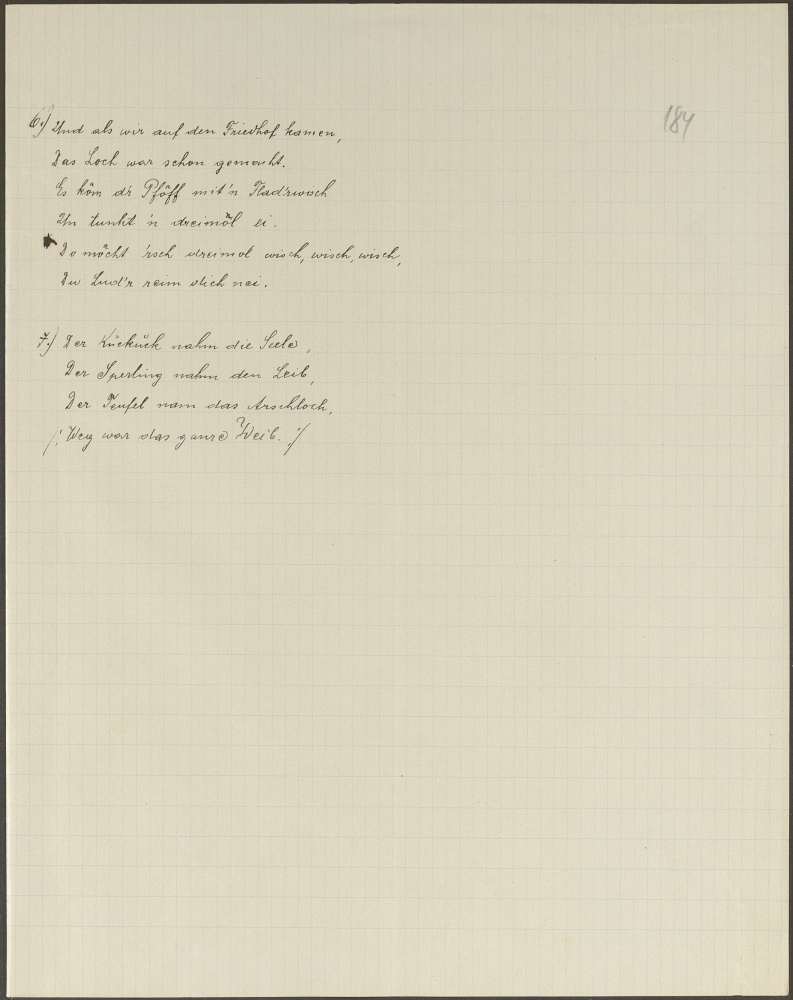 184
6.) Und als wir auf den Friedhof kamen,
Das Loch war schon gemacht.
Es köm d'r Pföff mit'n Flad'rwisch
Un tunkt 'n dreimöl ei.
Do möcht 'rsch dreimol wisch, wisch, wisch,
Du Lud'r reim dich nei.
7.) Der Kückück nahm die Seele,
Der Sperling nahm den Leib,
Der Teufel nam das Arschloch,
/: Weg war das ganze Weib. :/